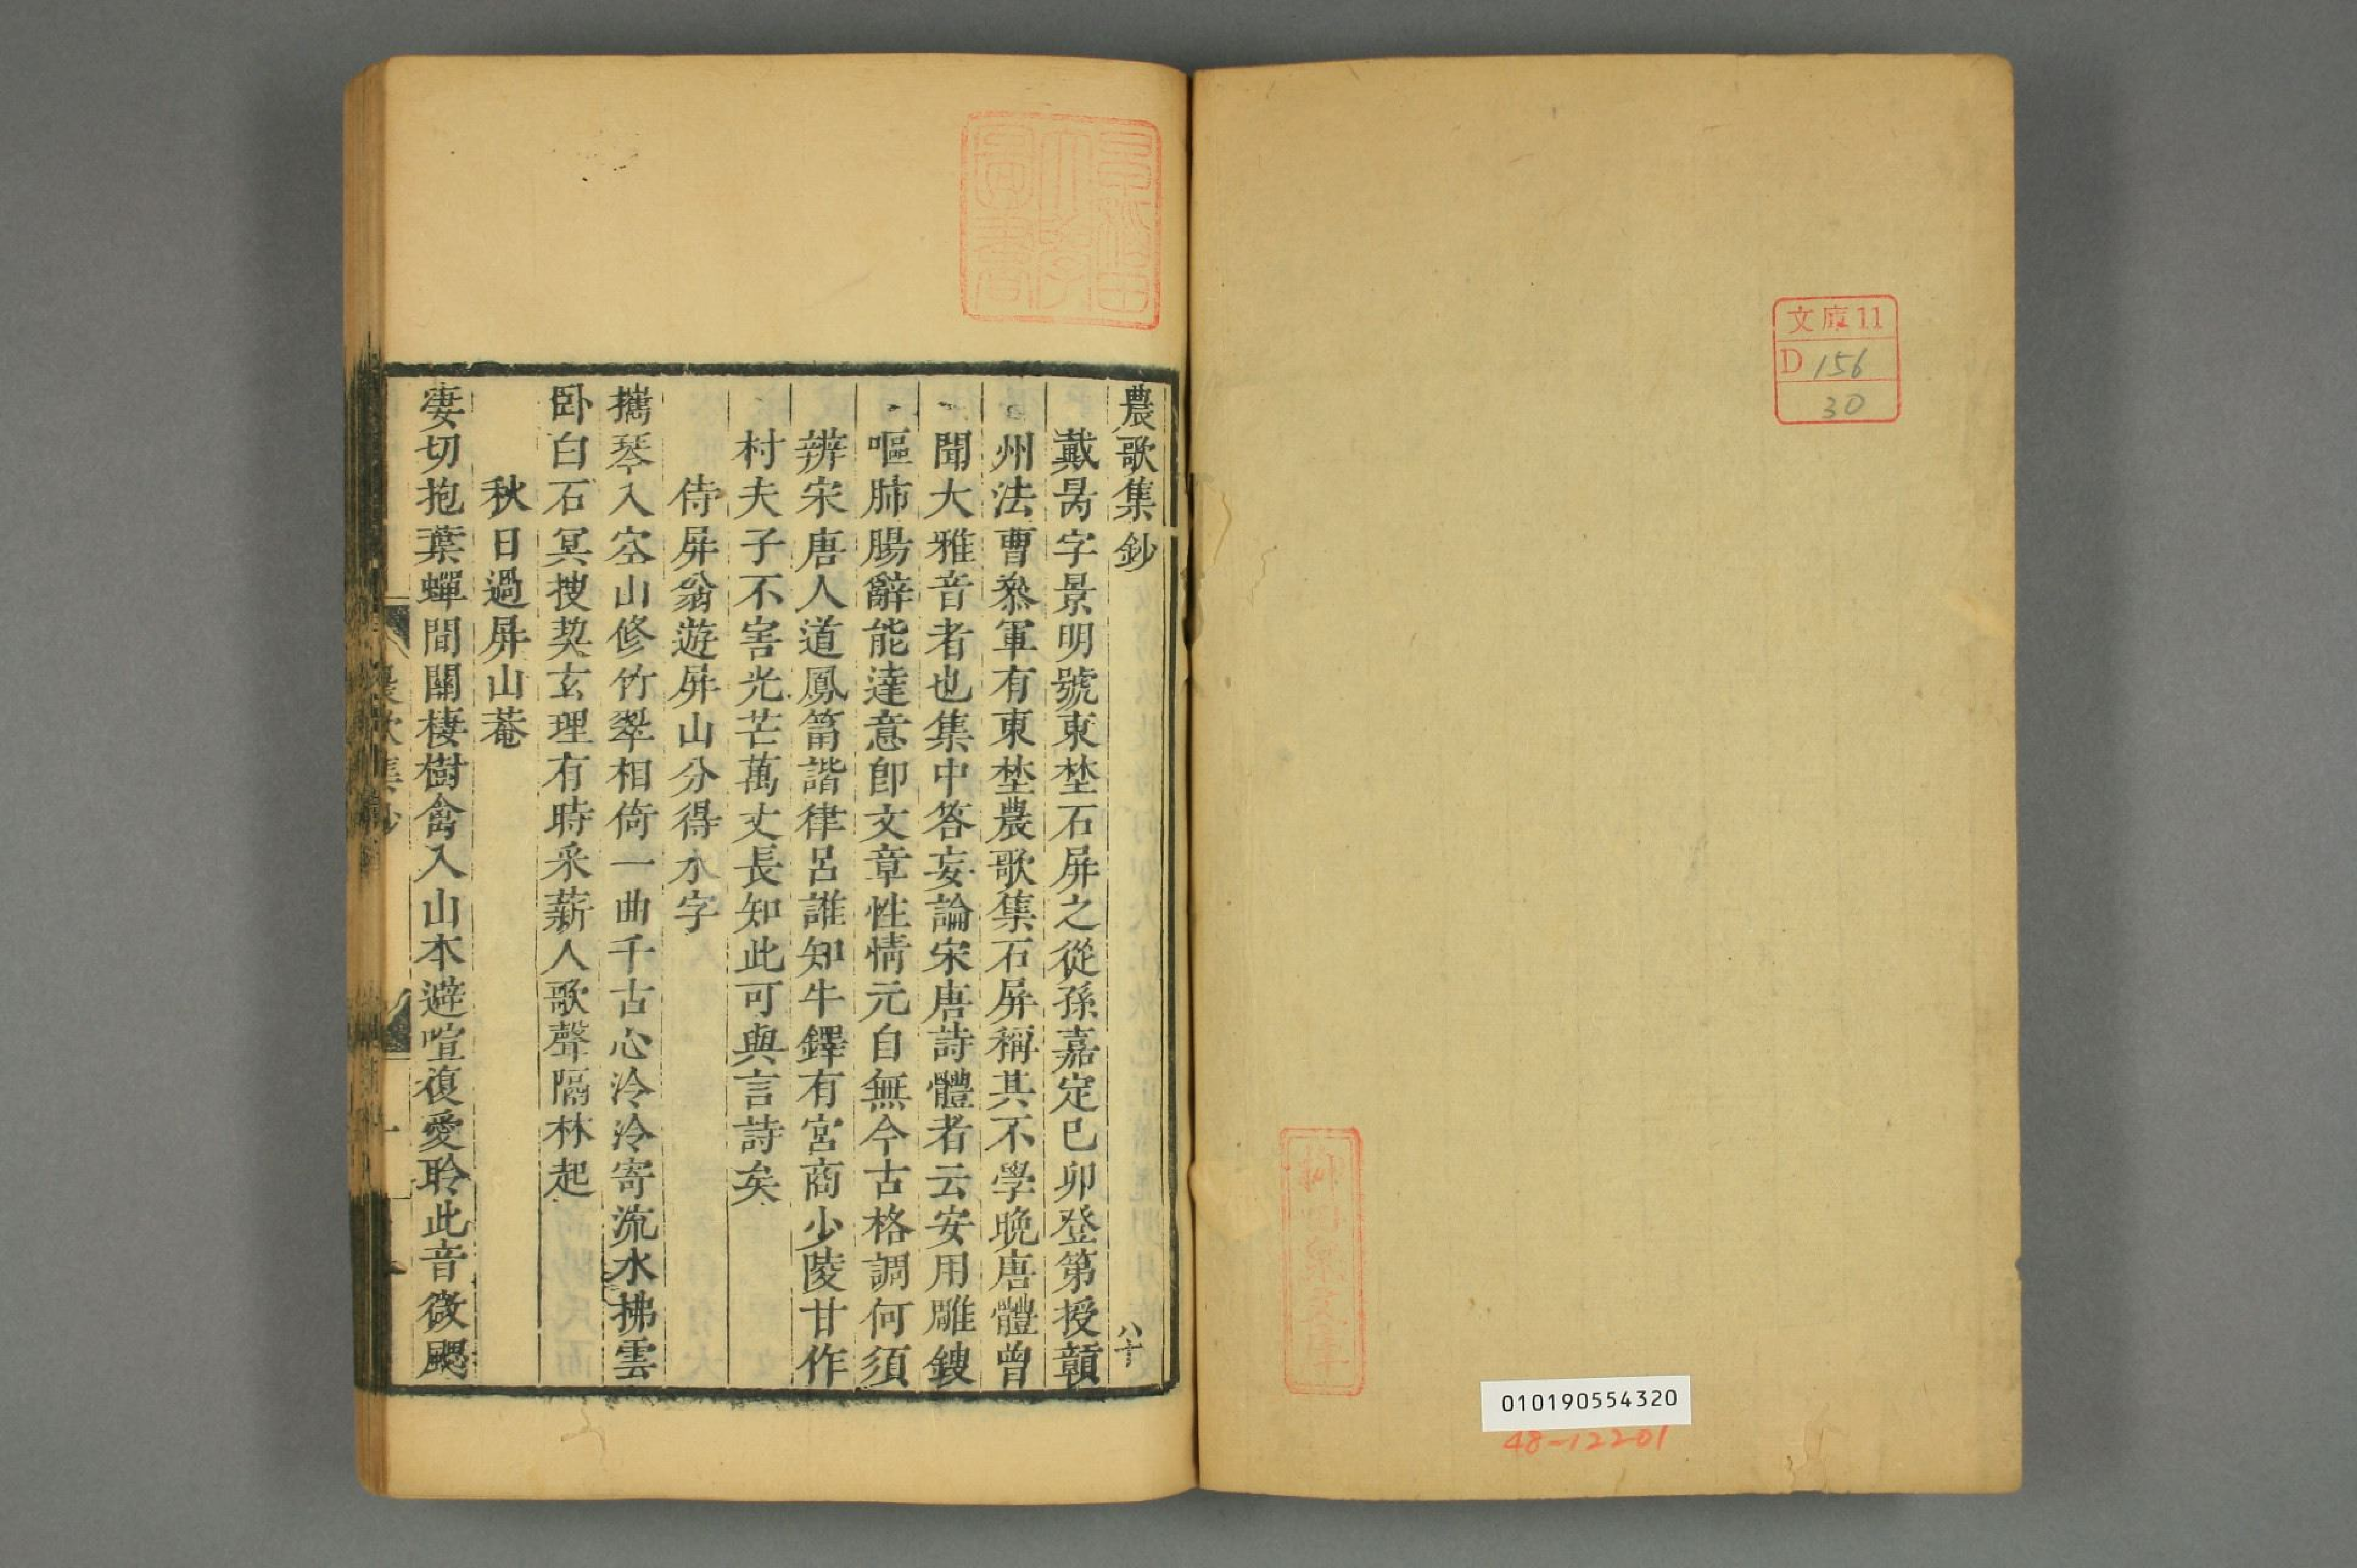 文庫11
D 156
30
010190554320
48-12201
農歌集鈔 八十
戴昺字景明號東埜石屏之從孫嘉定己卯登第授贛
州法曹叅軍有東埜農歌集石屏稱其不學晚唐體曾
聞大雅音者也集中答妄論宋唐詩體者云安用雕鎪
嘔肺腸辭能達意卽文章性情元自無今古格調何須
辨宋唐人道鳳筩諧律呂誰知牛鐸有宮商少陵甘作
村夫子不害光芒萬丈長知此可與言詩矣
侍屛翁遊屛山分得水字
攜琴入空山修竹翠相倚一曲千古心泠泠寄流水拂雲
卧白石冥搜契玄理有時采薪人歌聲隔林起
秋日過屛山菴
淒切抱葉蟬間關棲樹禽入山本避喧復愛聆此音微颸
農歌集鈔 一
早稻田大學圖書